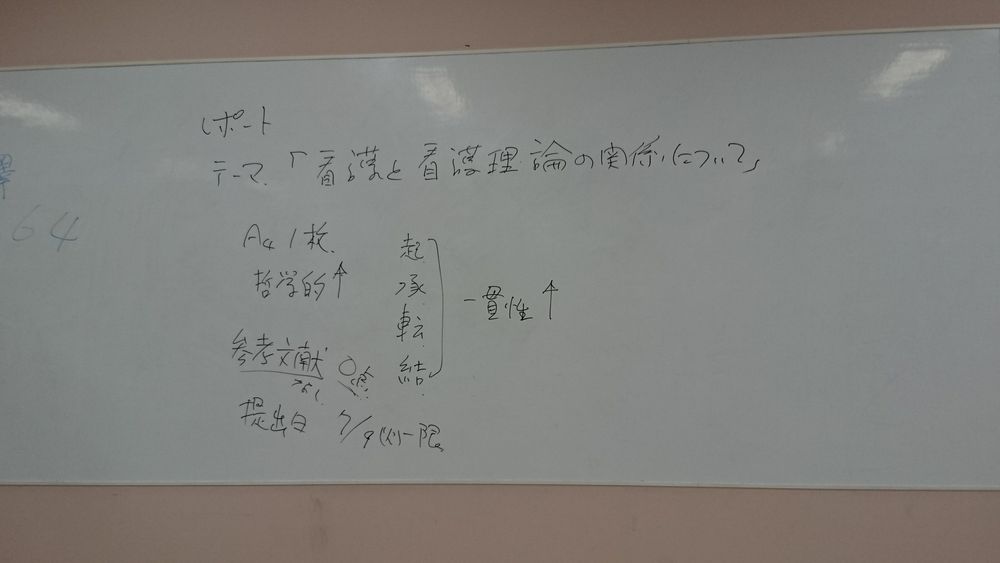 レポート
テーマ.「看護と看護理論の関係について」
A4 1枚.
哲学的↑
参考文献
なし.
提出日 7/9(火)一限。
起
承
転
結.
一貫性↑
64